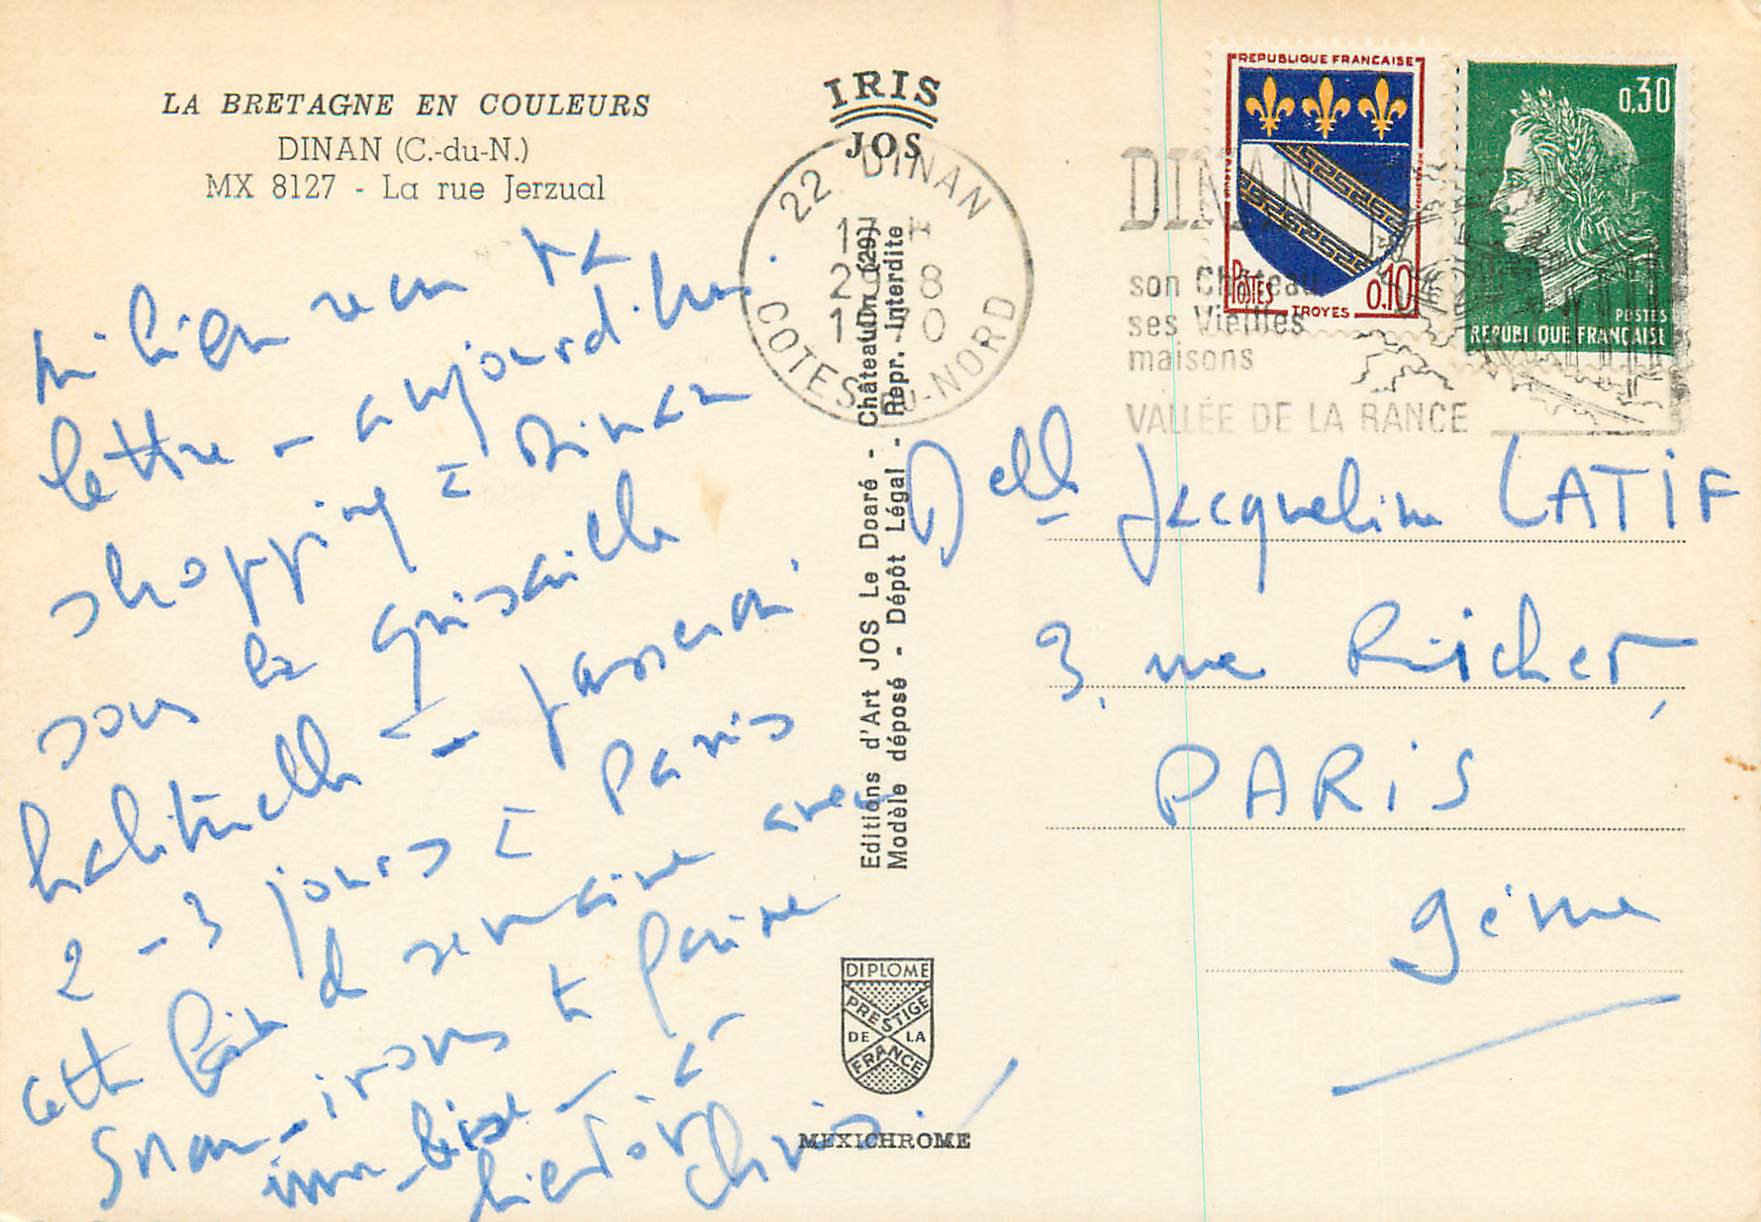 LA BRETAGNE EN COULEURS
DINAN (C.-du-N.)
MX 8127 - La rue Jerzual
IRIS
JOS
22 DINAN
COTES-DU-NORD
DINAN
son Château
ses Vieilles
maisons
VALLÉE DE LA RANCE
REPUBLIQUE FRANCAISE
POSTES
0,10
TROYES
0,30
POSTES
REPUBLIQUE FRANÇAISE
Editions d'Art JOS Le Doaré - Châteaulin (29)
Modèle déposé - Dépôt Légal - Repr. Interdite
DIPLOME
PRESTIGE
DE LA
FRANCE
MEXICHROME
ai bien reçu ta
lettre - aujourd'hui
shopping à Dinan
sous la grisaille
habituelle - passerai
2 - 3 jours à Paris
cette fin de semaine avec
irons te faire
une bise - à
bientôt
Delle Jacqueline LATIF
3, rue Richer,
PARIS
9ème